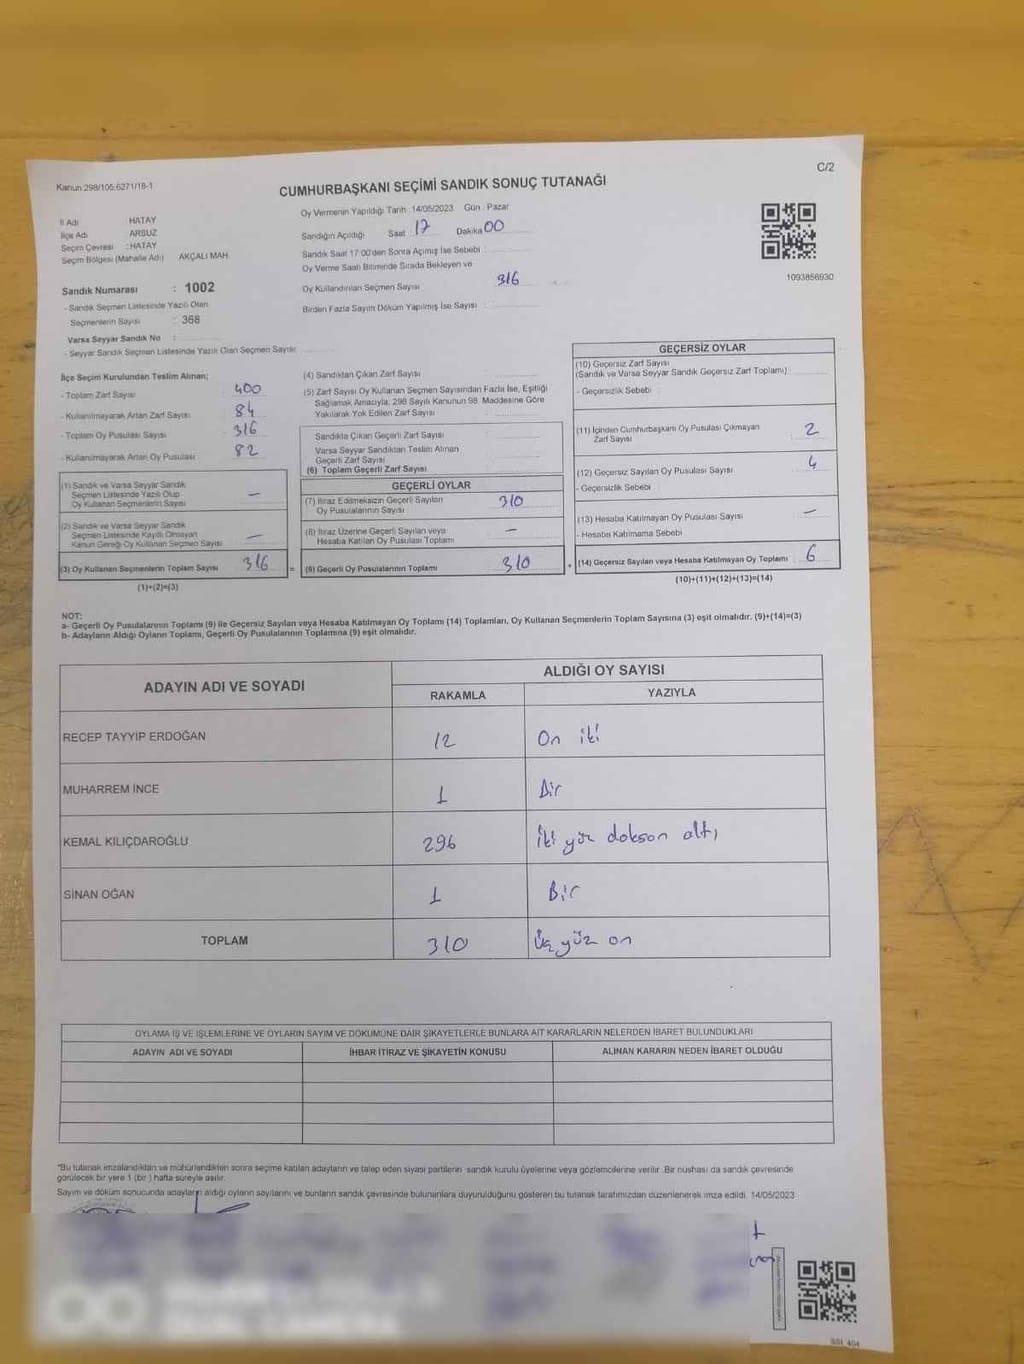 Kanun 298/105,6271/18-1
C/2
CUMHURBAŞKANI SEÇİMİ SANDIK SONUÇ TUTANAĞI
İl Adı HATAY
İlçe Adı ARSUZ
Seçim Çevresi : HATAY
Seçim Bölgesi (Mahalle Adı) AKÇALI MAH.
Oy Vermenin Yapıldığı Tarih : 14/05/2023 Gün : Pazar
Sandığın Açıldığı Saat 17 Dakika 00
Sandık Saat 17:00'den Sonra Açılmış İse Sebebi :
Oy Verme Saati Bitiminde Sırada Bekleyen ve
Oy Kullandırılan Seçmen Sayısı 316
Birden Fazla Sayım Döküm Yapılmış İse Sayısı :
1093856930
Sandık Numarası : 1002
- Sandık Seçmen Listesinde Yazılı Olan
Seçmenlerin Sayısı : 368
Varsa Seyyar Sandık No :
- Seyyar Sandık Seçmen Listesinde Yazılı Olan Seçmen Sayısı:
İlçe Seçim Kurulundan Teslim Alınan;
- Toplam Zarf Sayısı 400
- Kullanılmayarak Artan Zarf Sayısı 84
- Toplam Oy Pusulası Sayısı 316
- Kullanılmayarak Artan Oy Pusulası 82
(1) Sandık ve Varsa Seyyar Sandık
Seçmen Listesinde Yazılı Olup
Oy Kullanan Seçmenlerin Sayısı —
(2) Sandık ve Varsa Seyyar Sandık
Seçmen Listesinde Kayıtlı Olmayan
Kanun Gereği Oy Kullanan Seçmen Sayısı —
(3) Oy Kullanan Seçmenlerin Toplam Sayısı 316 =
(1)+(2)=(3)
(4) Sandıktan Çıkan Zarf Sayısı :
(5) Zarf Sayısı Oy Kullanan Seçmen Sayısından Fazla İse, Eşitliği
Sağlamak Amacıyla, 298 Sayılı Kanunun 98. Maddesine Göre
Yakılarak Yok Edilen Zarf Sayısı :
Sandıkta Çıkan Geçerli Zarf Sayısı :
Varsa Seyyar Sandıktan Teslim Alınan
Geçerli Zarf Sayısı :
(6) Toplam Geçerli Zarf Sayısı
GEÇERLİ OYLAR
(7) İtiraz Edilmeksizin Geçerli Sayılan
Oy Pusulalarının Sayısı 310
(8) İtiraz Üzerine Geçerli Sayılan veya
Hesaba Katılan Oy Pusulası Toplamı —
(9) Geçerli Oy Pusulalarının Toplamı 310 +
GEÇERSİZ OYLAR
(10) Geçersiz Zarf Sayısı
(Sandık ve Varsa Seyyar Sandık Geçersiz Zarf Toplamı) :
- Geçersizlik Sebebi :
(11) İçinden Cumhurbaşkanı Oy Pusulası Çıkmayan
Zarf Sayısı 2
(12) Geçersiz Sayılan Oy Pusulası Sayısı 4
- Geçersizlik Sebebi :
(13) Hesaba Katılmayan Oy Pusulası Sayısı —
- Hesaba Katılmama Sebebi :
(14) Geçersiz Sayılan veya Hesaba Katılmayan Oy Toplamı 6
(10)+(11)+(12)+(13)=(14)
NOT:
a- Geçerli Oy Pusulalarının Toplamı (9) ile Geçersiz Sayılan veya Hesaba Katılmayan Oy Toplamı (14) Toplamları, Oy Kullanan Seçmenlerin Toplam Sayısına (3) eşit olmalıdır. (9)+(14)=(3)
b- Adayların Aldığı Oyların Toplamı, Geçerli Oy Pusulalarının Toplamına (9) eşit olmalıdır.
ADAYIN ADI VE SOYADI
ALDIĞI OY SAYISI
RAKAMLA YAZIYLA
RECEP TAYYİP ERDOĞAN 12 On iki
MUHARREM İNCE 1 Bir
KEMAL KILIÇDAROĞLU 296 İki yüz dokson altı
SİNAN OĞAN 1 Bir
TOPLAM 310 Üç yüz on
OYLAMA İŞ VE İŞLEMLERİNE VE OYLARIN SAYIM VE DÖKÜMÜNE DAİR ŞİKAYETLERLE BUNLARA AİT KARARLARIN NELERDEN İBARET BULUNDUKLARI
ADAYIN ADI VE SOYADI İHBAR İTİRAZ VE ŞİKAYETİN KONUSU ALINAN KARARIN NEDEN İBARET OLDUĞU
*Bu tutanak imzalandıktan ve mühürlendikten sonra seçime katılan adayların ve talep eden siyasi partilerin sandık kurulu üyelerine veya gözlemcilerine verilir. Bir nüshası da sandık çevresinde
görülecek bir yere 1 (bir ) hafta süreyle asılır.
Sayım ve döküm sonucunda adayların aldığı oyların sayılarını ve bunların sandık çevresinde bulunanlara duyurulduğunu gösteren bu tutanak tarafımızdan düzenlenerek imza edildi. 14/05/2023